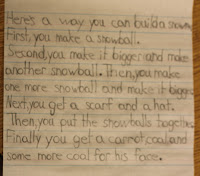 Here's a way you can build a snow
First, you make a snowball.
Second, you make it bigger and make
another snowball. Then, you make
one more snowball and make it bigge
Next, you get a scarf and a hat.
Then, you put the snowballs together
Finally you get a carrot coal and
some more coal for his face.